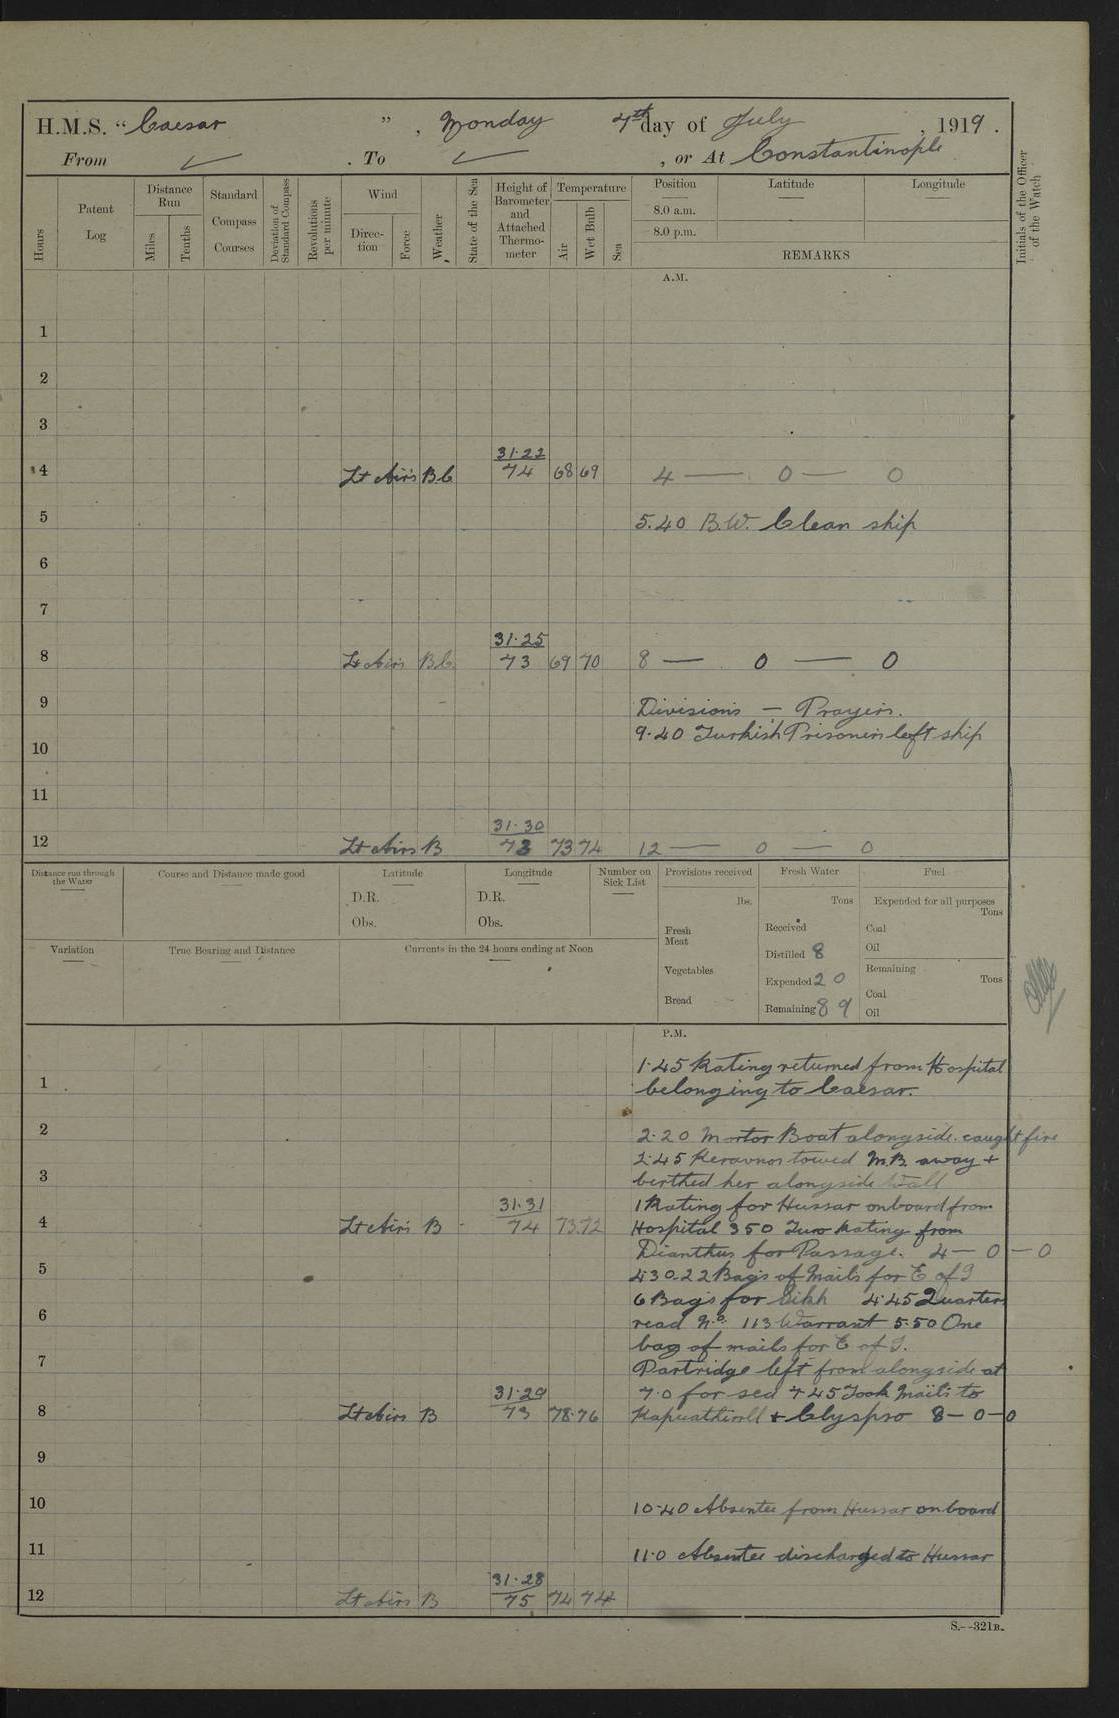 H.M.S. "Caesar", Monday 7th day of July, 1919.
From ✓ . To ✓ , or At Constantinople
Hours
Patent Log
Distance Run
Miles
Tenths
Standard Compass Courses
Deviation of Standard Compass
Revolutions per minute
Wind
Direction
Force
Weather
State of the Sea
Height of Barometer and Attached Thermometer
Temperature
Air
Wet Bulb
Sea
Position
Latitude
Longitude
8.0 a.m.
8.0 p.m.
REMARKS
Initials of the Officer of the Watch
A.M.
1
2
3
31·22
4 Lt Airs B.C 74 68 69 4 — 0 — 0
5 5.40 B.W. Clean ship
6
7
31·25
8 Lt Airs B.C 73 69 70 8 — 0 — 0
9 Divisions — Prayers.
9·40 Turkish Prisoners left ship
10
11
31·30
12 Lt Airs B 73 73 74 12 — 0 — 0
Distance run through the Water
Course and Distance made good
Latitude
D.R.
Obs.
Longitude
D.R.
Obs.
Number on Sick List
Provisions received
lbs.
Fresh Meat
Vegetables
Bread
Fresh Water
Tons
Received
Distilled 8
Expended 20
Remaining 89
Fuel
Expended for all purposes
Tons
Coal
Oil
Remaining
Tons
Coal
Oil
Variation
True Bearing and Distance
Currents in the 24 hours ending at Noon
P.M.
1·45 Rating returned from Hospital
1 belonging to Caesar.
2 2·20 Motor Boat alongside caught fire
2·45 Keravnos towed M.B. away +
3 berthed her alongside Wall
31·31 1 Rating for Hussar onboard from
4 Lt Airs B 74 73 72 Hospital 350 Two Rating from
Dianthus for Passage. 4 — 0 — 0
5 4·30·22 Bags of Mails for E of I
6 Bags for Sikh 4·45 Quarters
6 read No. 113 Warrant 5·50 One
bag of mails for E of I.
7 Partridge left from alongside at
31·29 7·0 for sea 7·45 Took Mails to
8 Lt Airs B 73 78·76 + Clyspro 8 — 0 — 0
9
10 10·40 Absentee from Hussar onboard
11 11·0 Absentee discharged to Hussar
31·28
12 Lt Airs B 75 74 74
S.—321B.